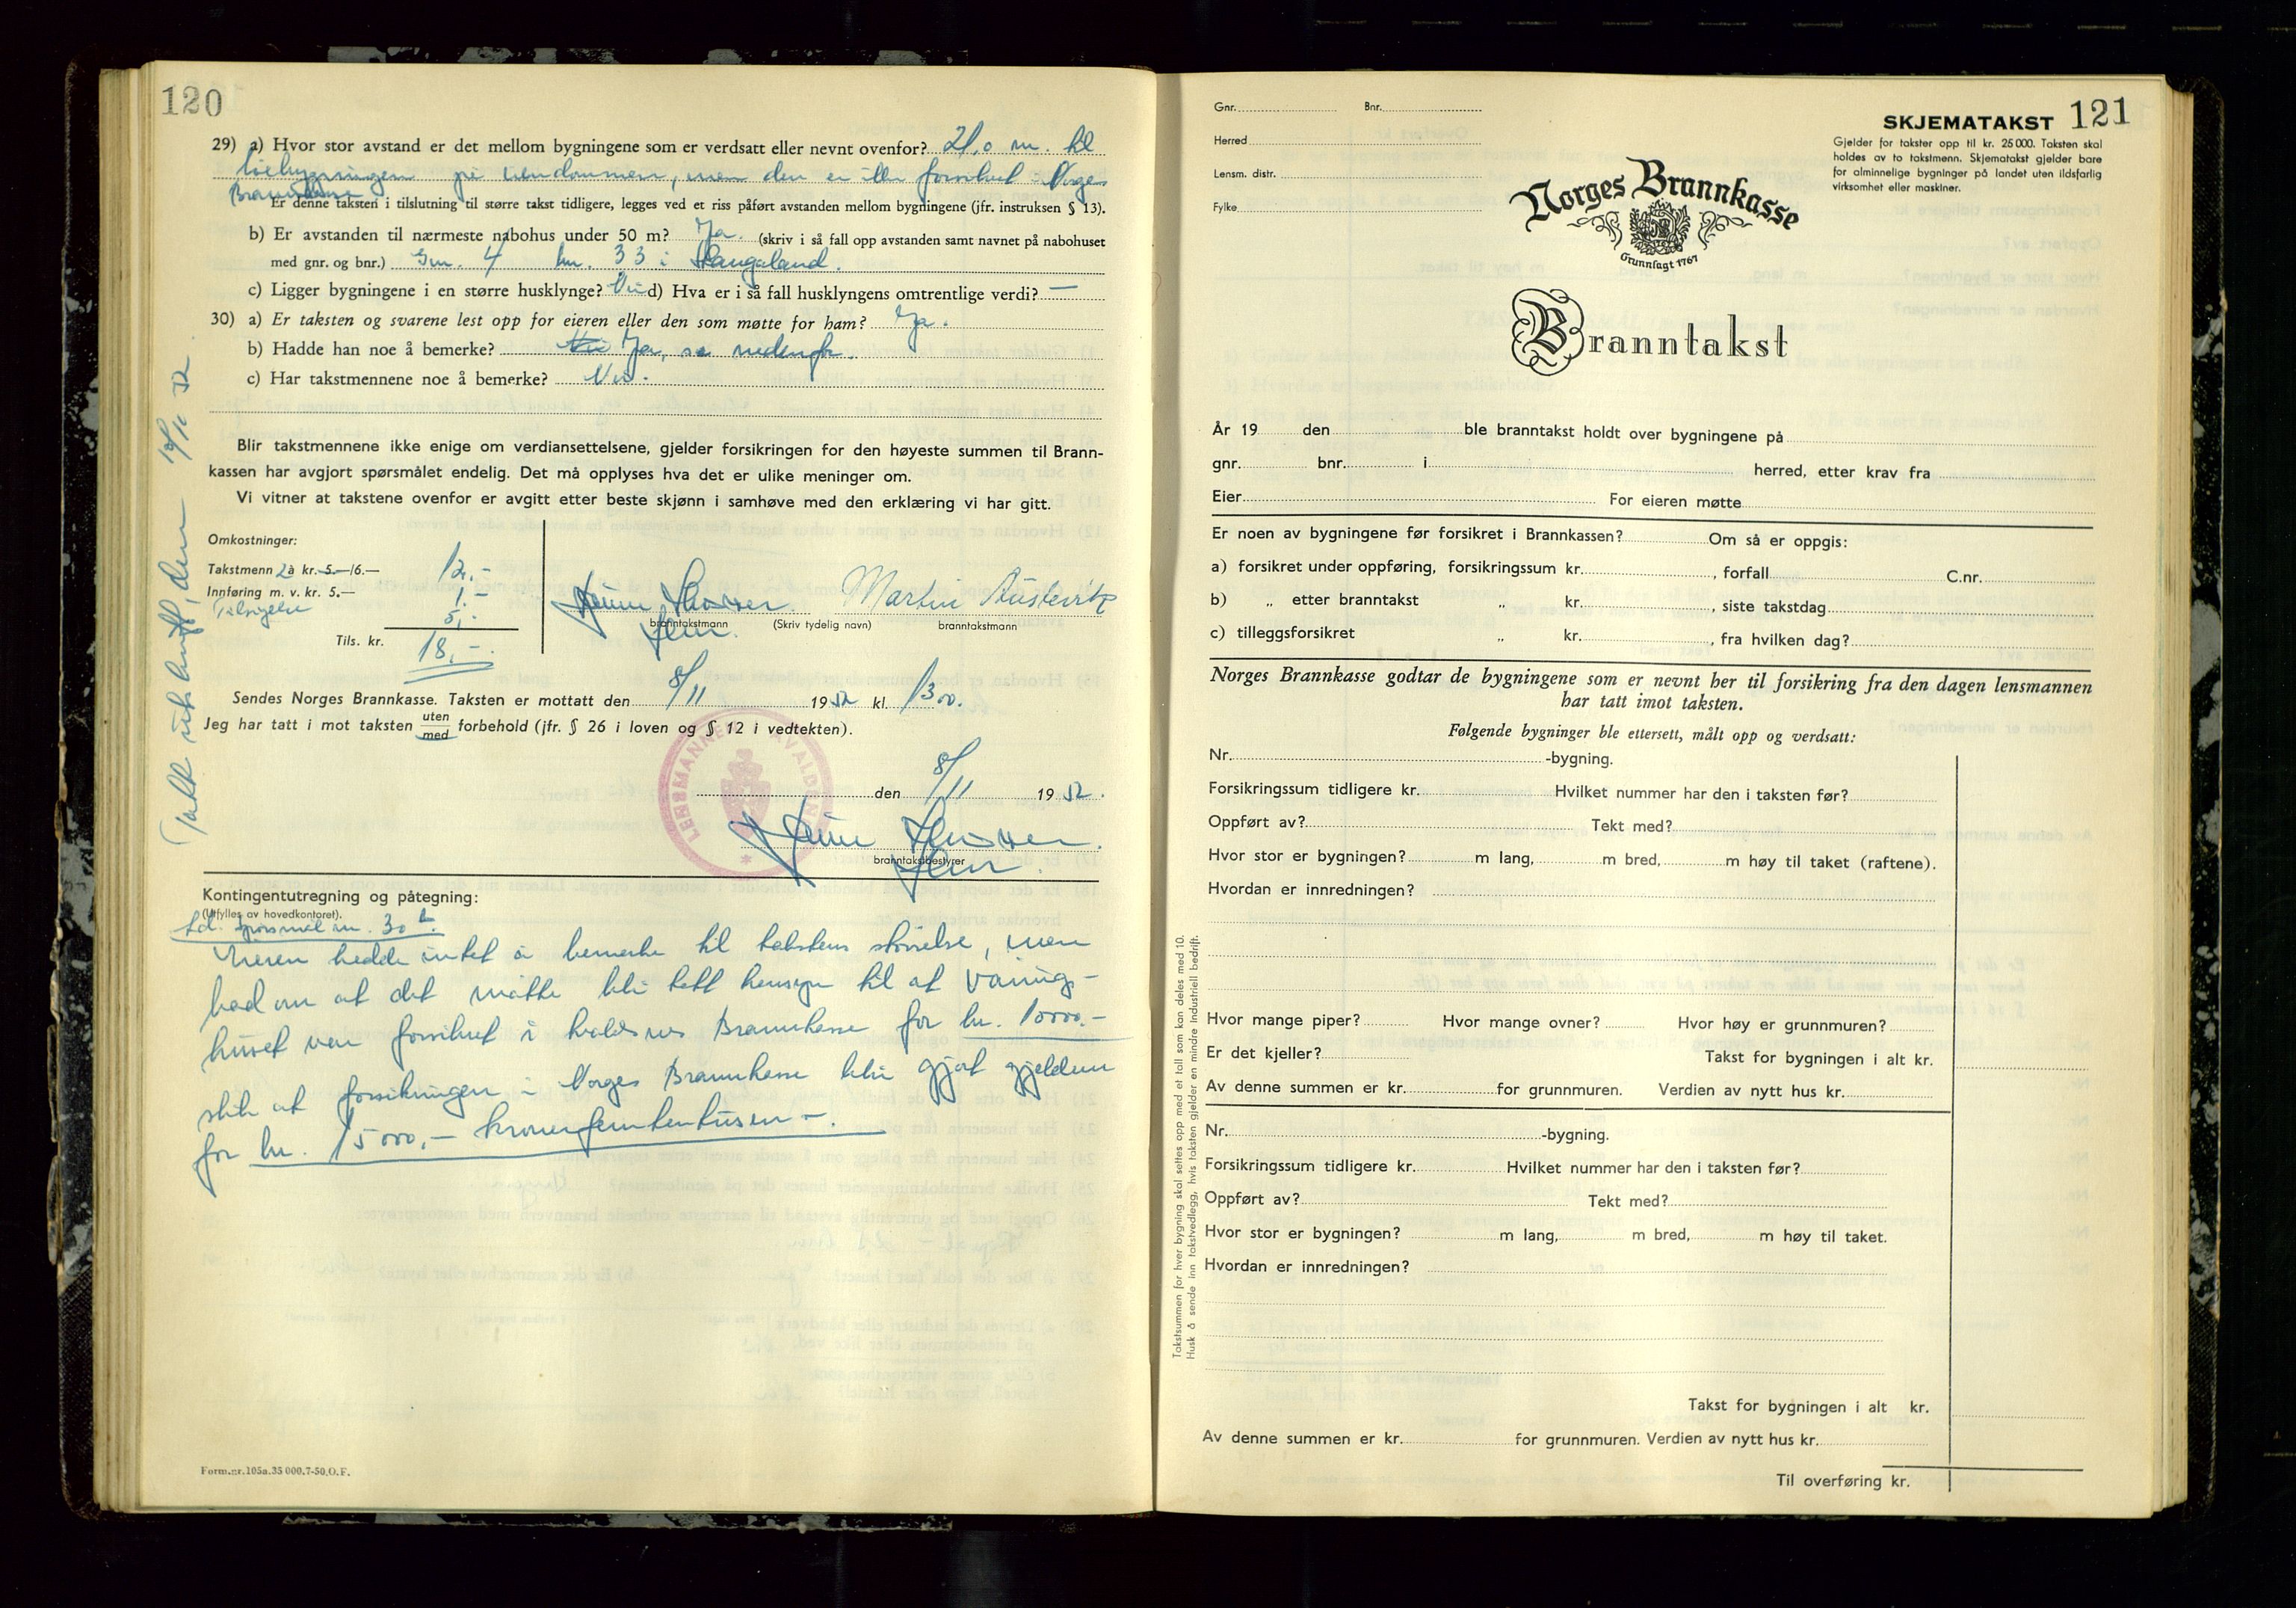 120
29) a) Hvor stor avstand er det mellom bygningene som er verdsatt eller nevnt ovenfor? 21,0 m. til
løebygningen på eiendommen, men den er ikke forsikret i Norges
Brannkasse
Er denne taksten i tilslutning til større takst tidligere, legges ved et riss påført avstanden mellom bygningene (jfr. instruksen § 13).
b) Er avstanden til nærmeste nabohus under 50 m? Ja. (skriv i så fall opp avstanden samt navnet på nabohuset
med gnr. og bnr.) Gnr. 4 bnr. 33 i Haugaland.
c) Ligger bygningene i en større husklynge? Nei d) Hva er i så fall husklyngens omtrentlige verdi? —
30) a) Er taksten og svarene lest opp for eieren eller den som møtte for ham? Ja.
b) Hadde han noe å bemerke? Ja, se nedenfor.
c) Har takstmennene noe å bemerke? Nei.
Blir takstmennene ikke enige om verdiansettelsene, gjelder forsikringen for den høyeste summen til Brann-
kassen har avgjort spørsmålet endelig. Det må opplyses hva det er ulike meninger om.
Vi vitner at takstene ovenfor er avgitt etter beste skjønn i samhøve med den erklæring vi har gitt.
Omkostninger:
Takstmenn 2 à kr. 5.—/6.— 12,-
Innføring m. v. kr. 5.— 1,-
Tilsigelse 5,-
Tils. kr. 18,-
Martin Austevik
branntakstmann (Skriv tydelig navn) branntakstmann
Sendes Norges Brannkasse. Taksten er mottatt den 8/11 1952 kl. 1300.
Jeg har tatt i mot taksten uten/med forbehold (jfr. § 26 i loven og § 12 i vedtekten).
den 8/11 1952.
branntakstbestyrer
Takst utskrift, den 10/11 52.
Kontingentutregning og påtegning:
(Utfylles av hovedkontoret).
td. spørsmål nr. 30 b.
Eieren hadde intet å bemerke til takstens størrelse, men
bad om at det måtte bli tatt hensyn til at våning-
huset var forsikret i Brannkasse for kr. 10000.-
slik at forsikringen i Norges Brannkasse blir gjort gjeldene
for kr. 15000,- kronerfemtentusen -.
Form.nr.105a.35 000.7-50.O.F.
Gnr. Bnr.
Herred
Lensm. distr.
Fylke
SKJEMATAKST 121
Gjelder for takster opp til kr. 25 000. Taksten skal
holdes av to takstmenn. Skjematakst gjelder bare
for alminnelige bygninger på landet uten ildsfarlig
virksomhet eller maskiner.
Norges Brannkasse
Grunnlagt 1767
Branntakst
År 19 den ble branntakst holdt over bygningene på
gnr. bnr. i herred, etter krav fra
Eier For eieren møtte
Er noen av bygningene før forsikret i Brannkassen? Om så er oppgis:
a) forsikret under oppføring, forsikringssum kr. , forfall C.nr.
b) „ etter branntakst „ kr. , siste takstdag
c) tilleggsforsikret „ kr. , fra hvilken dag?
Norges Brannkasse godtar de bygningene som er nevnt her til forsikring fra den dagen lensmannen
har tatt imot taksten.
Følgende bygninger ble ettersett, målt opp og verdsatt:
Nr. -bygning.
Forsikringssum tidligere kr. Hvilket nummer har den i taksten før?
Oppført av? Tekt med?
Hvor stor er bygningen? m lang, m bred, m høy til taket (raftene).
Hvordan er innredningen?
Hvor mange piper? Hvor mange ovner? Hvor høy er grunnmuren?
Er det kjeller? Takst for bygningen i alt kr.
Av denne summen er kr. for grunnmuren. Verdien av nytt hus kr.
Nr. -bygning.
Forsikringssum tidligere kr. Hvilket nummer har den i taksten før?
Oppført av? Tekt med?
Hvor stor er bygningen? m lang, m bred, m høy til taket.
Hvordan er innredningen?
Takst for bygningen i alt kr.
Av denne summen er kr. for grunnmuren. Verdien av nytt hus kr.
Til overføring kr.
Takstsummen for hver bygning skal settes opp med et tall som kan deles med 10.
Husk å sende inn takstvedlegg, hvis taksten gjelder en mindre industriell bedrift.